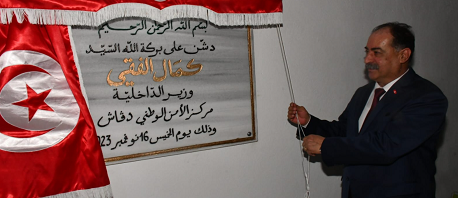 بسم الله الرحمن الرحيم
دشن على بركة الله السيد
كمال الفقي
وزير الداخلية
مركز الأمن الوطني دقاش
وذلك يوم الخميس 16 نوفمبر 2023